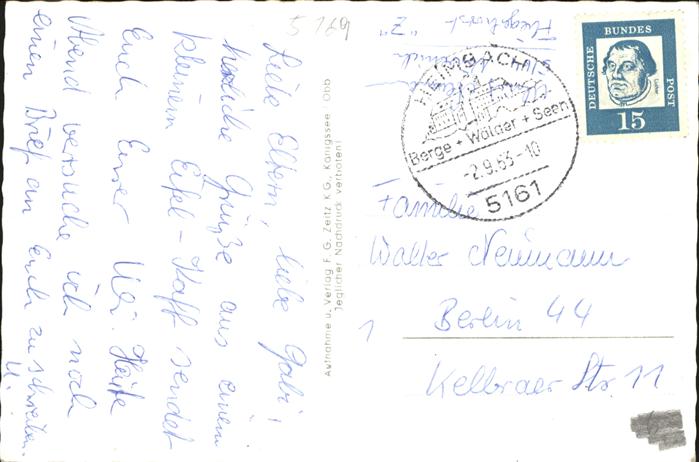 5169
Liebe Eltern, liebe Gabi,
herzliche Grüße aus einem
kleinem Eifel-Kaff sendet
Euch Euer Uli. Heute
Abend versuche ich noch
einen Brief an Euch zu schreiben.
U.
Aufnahme u. Verlag F. G. Zeitz K G., Königssee / Obb
Jeglicher Nachdruck verboten!
Fliegerhorst "Z"
HEIMBACH
Berge + Wälder + Seen
-2.9.63-10
5161
DEUTSCHE BUNDES POST
Luther
15
Familie
Walter Neumann
1 Berlin 44
Kelbraer Str. 11